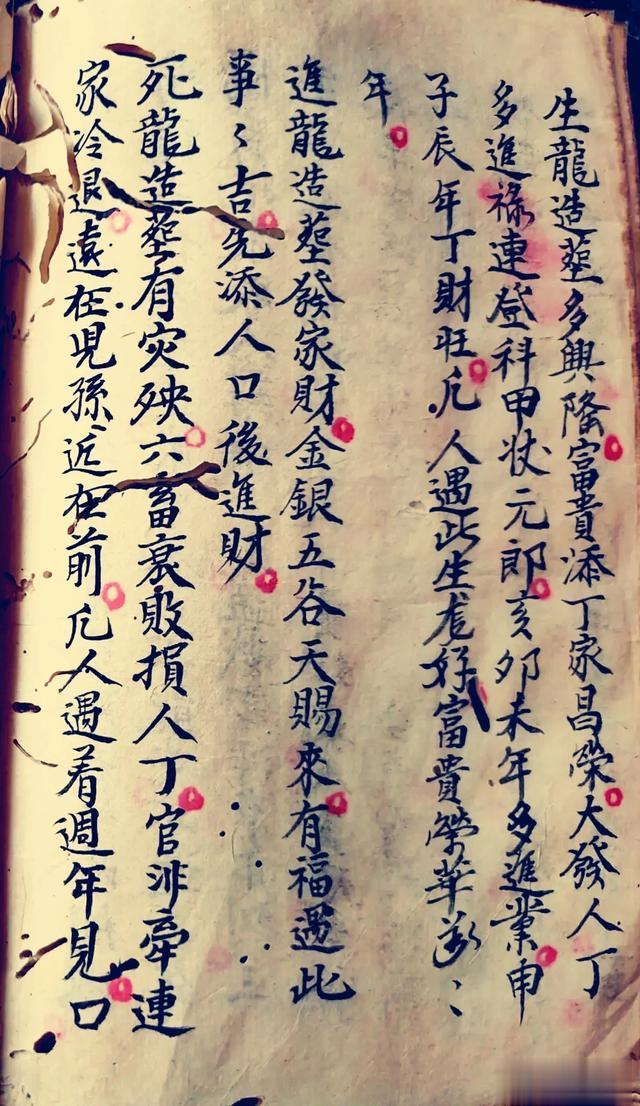 生龍造塟多興隆富貴添丁家昌榮大發人丁
多進祿連登科甲状元郎亥夘未年多進業申
子辰年丁財旺凢人遇此生龙好富貴榮華
年
進龍造塟發家財金銀五谷天賜來有福遇此
事〻吉先添人口後進財
死龍造塟有灾殃六畜衰敗損人丁官非牽連
家冷退遠在児孫近在前凢人遇着週年見口